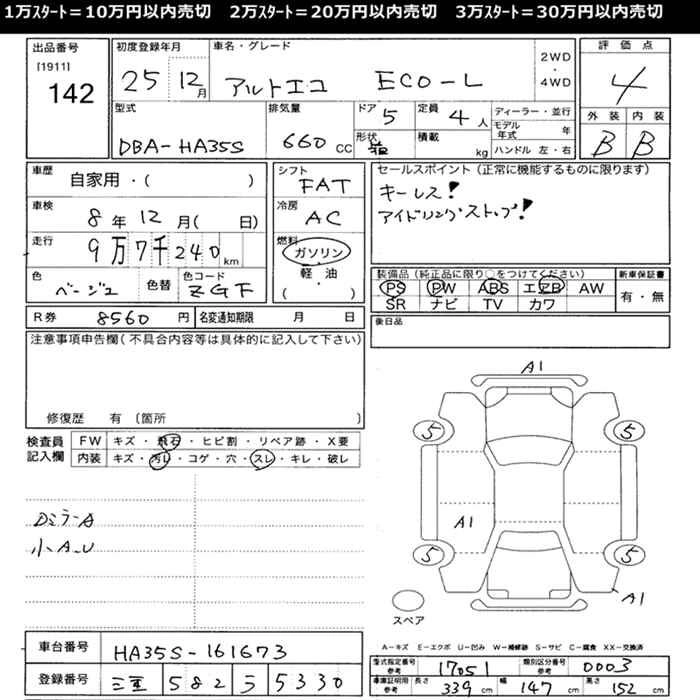 1万ｽﾀｰﾄ＝10万円以内売切　2万ｽﾀｰﾄ＝20万円以内売切　3万ｽﾀｰﾄ＝30万円以内売切
出品番号
[1911]
142
初度登録年月
25 12月
車名・グレード
アルトエコ ECO-L
2WD
・
4WD
評価点
4
型式
DBA-HA35S
排気量
660 CC
ドア 5
形状
定員 4人
積載 kg
ディーラー・並行
モデル年式 年
ハンドル 左・右
外装 内装
B B
車歴 自家用・( )
車検 8年12月( 日)
走行 9万7千240km
色 ベージュ 色替
色コード ZGF
シフト FAT
冷房 AC
燃料 ガソリン
軽・油
・
( )
セールスポイント(正常に機能するものに限ります)
キーレス!
アイドリングストップ!
装備品(純正品に限り○をつけてください)
PS PW ABS エアB AW
SR ナビ TV カワ
新車保証書
有・無
R券 8560円 名変通知期限 月 日
後日品
注意事項申告欄(不具合内容等は具体的に記入して下さい)
修復歴 有 (箇所 )
検査員記入欄
FW キズ・飛石・ヒビ割・リペア跡・X要
内装 キズ・汚レ・コゲ・穴・スレ・キレ・破レ
Dミラ-A
小A.U
A1
5 5
A1
5 5
A1
スペア
A-キズ E-エクボ U-凹み W-補修跡 S-サビ C-腐食 XX-交換済
車台番号 HA35S-161673
登録番号 三重 582 ラ 5330
型式指定番号 参考 17051 類別区分番号 参考 0003
車庫証明用 参考 長さ 339cm 幅 147cm 高さ 152cm